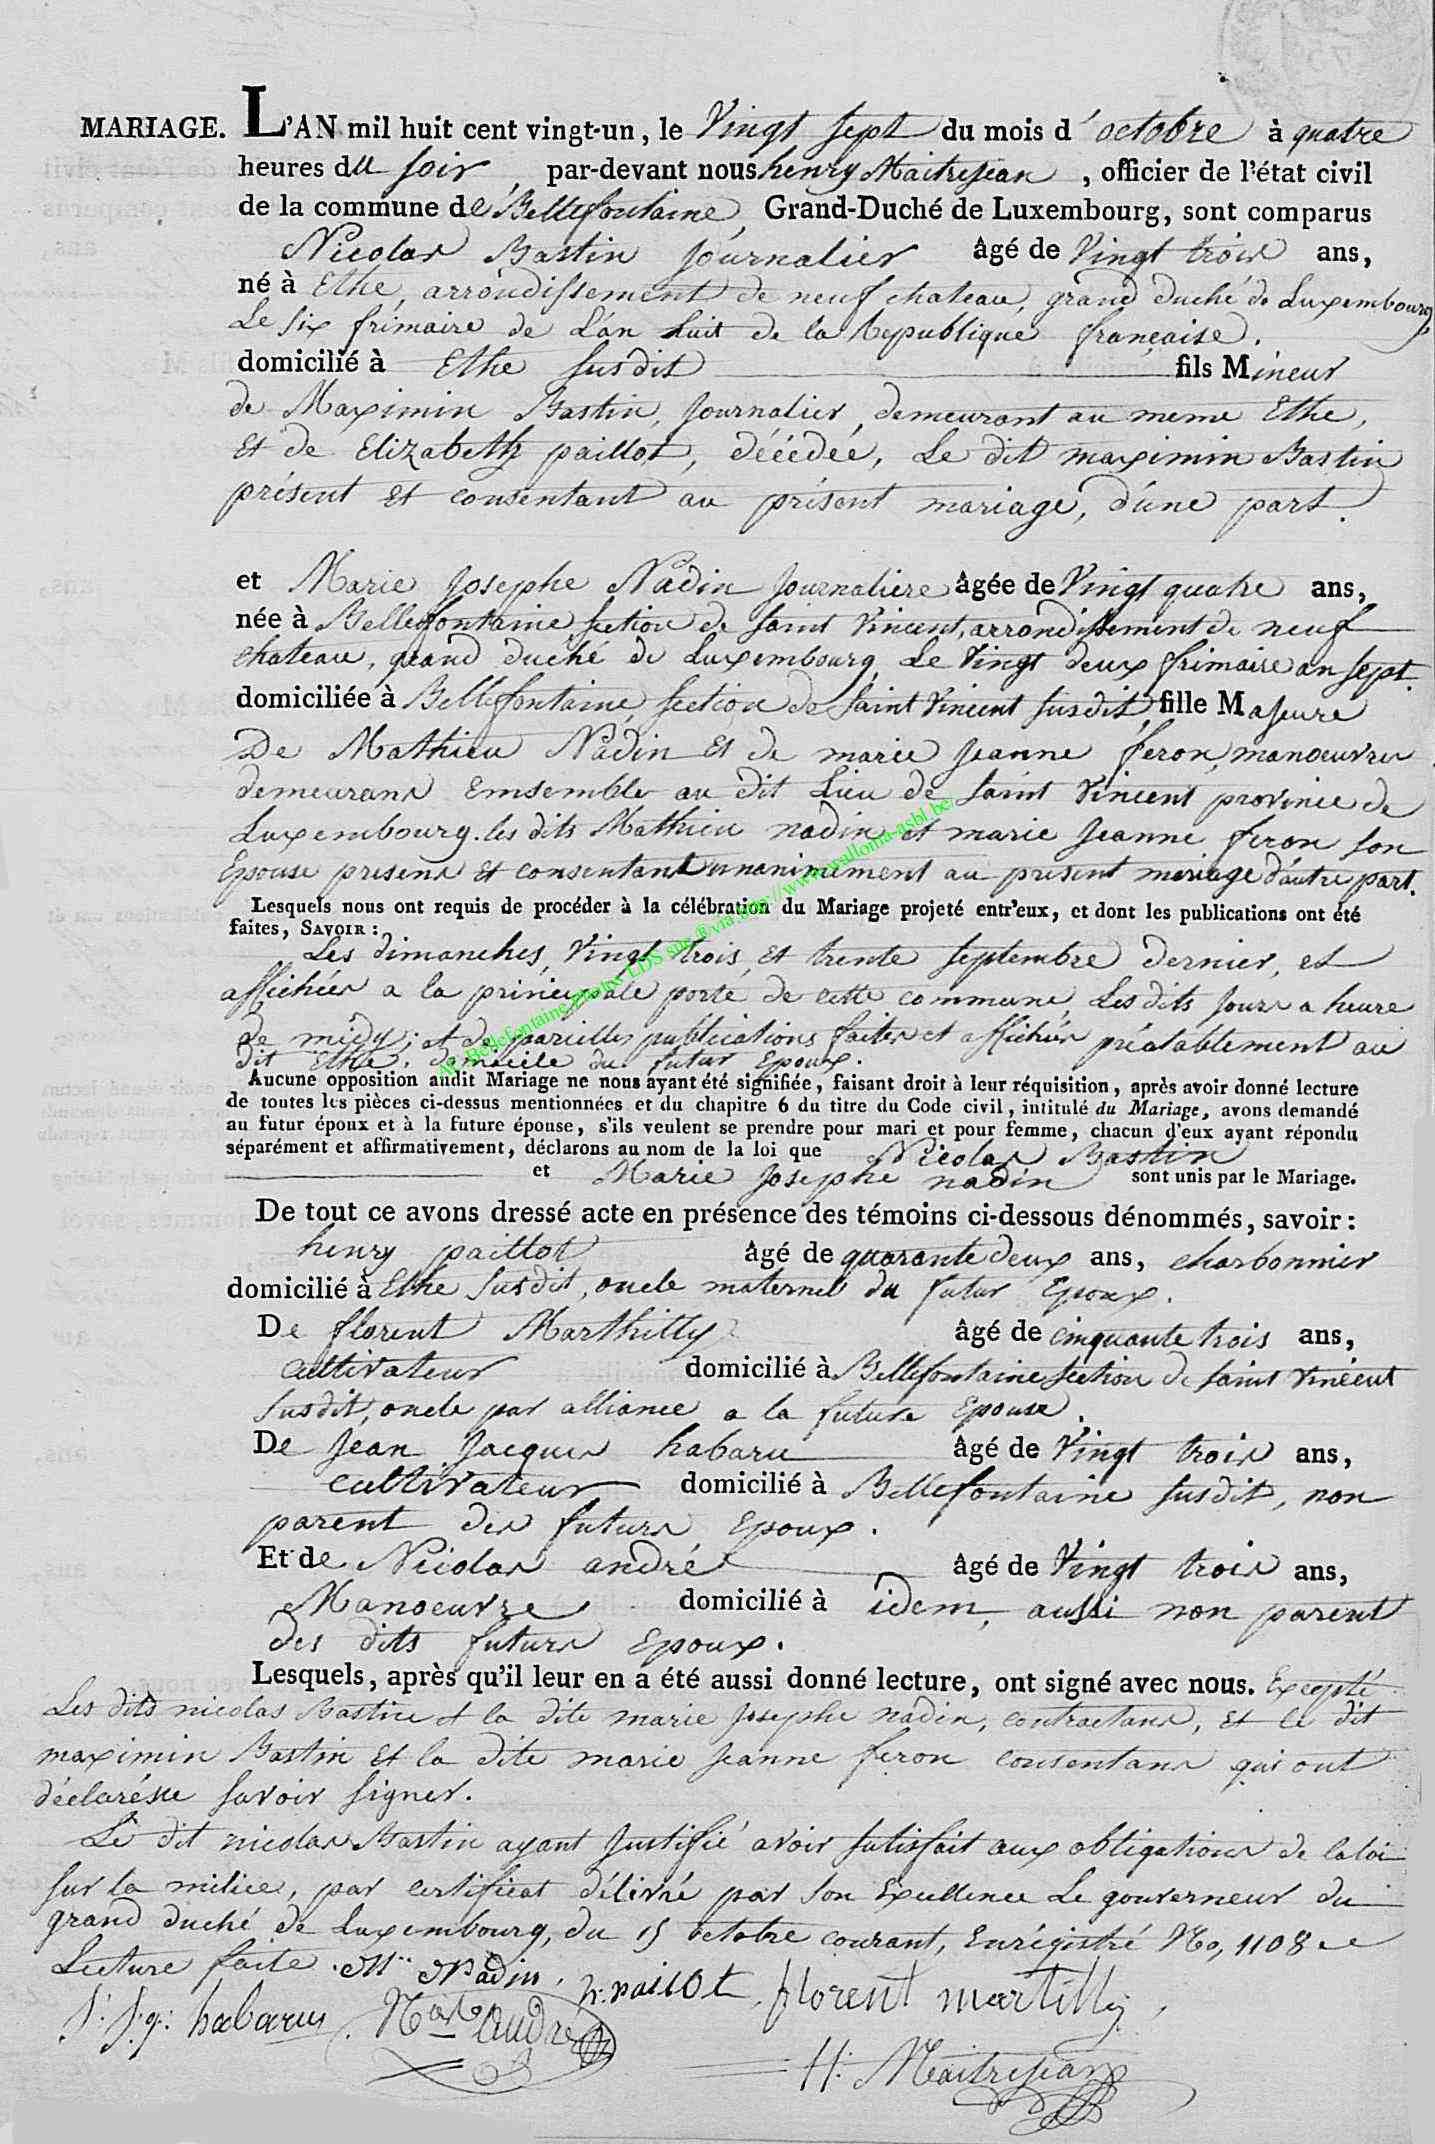 MARIAGE. L'AN mil huit cent vingt-un, le Vingt sept du mois d'octobre à quatre
heures du soir, par-devant nous henry Maitrejean, officier de l'état civil
de la commune de Bellefontaine, Grand-Duché de Luxembourg, sont comparus
Nicolas Bastin journalier âgé de Vingt trois ans,
né à Ethe, arrondissement de neufchateau, grand duché de Luxembourg
Le six frimaire de L'an huit de la République française.
domicilié à Ethe susdit fils Mineur
de Maximin Bastin, journalier, demeurant au meme Ethe,
et de Elizabeth paillot, décédée, Le dit maximin Bastin
présent et consentant au présent mariage, d'une part.
et Marie Josephe Nadin Journaliere âgée de Vingt quatre ans,
née à Bellefontaine section de saint Vincent, arrondissement de neuf
chateau, grand duché de Luxembourg, Le Vingt deux frimaire an sept.
domiciliée à Bellefontaine, section de saint Vincent susdit, fille Majeure
De Mathieu Nadin et de marie Jeanne feron, manoeuvres
demeurans Emsemble au dit Lieu de saint Vincent province de
Luxembourg. les dits Mathieu nadin et marie Jeanne feron son
Epouse presens et consentant unanimement au present mariage d'autre part.
Lesquels nous ont requis de procéder à la célébration du Mariage projeté entr'eux, et dont les publications ont été
faites, SAVOIR :
Les dimanches, Vingt trois, et trente septembre dernier, et
affichées a la principale porte de cette commune, Les dits jours a heure
de midy ; et de pareilles publications faites et affichées préalablement au
dit Ethe, domicile du futur Epoux.
Aucune opposition audit Mariage ne nous ayant été signifiée, faisant droit à leur réquisition, après avoir donné lecture
de toutes les pièces ci-dessus mentionnées et du chapitre 6 du titre du Code civil, intitulé du Mariage, avons demandé
au futur époux et à la future épouse, s'ils veulent se prendre pour mari et pour femme, chacun d'eux ayant répondu
séparément et affirmativement, déclarons au nom de la loi que Nicolas Bastin
et Marie Josephe nadin sont unis par le Mariage.
De tout ce avons dressé acte en présence des témoins ci-dessous dénommés, savoir :
henry paillot âgé de quarante deux ans, charbonnier
domicilié à Ethe susdit, oncle maternel du futur Epoux.
De florent Marthilly âgé de cinquante trois ans,
cultivateur domicilié à Bellefontaine section de saint Vincent
susdit, oncle par alliance a la future Epouse.
De Jean Jacques habaru âgé de Vingt trois ans,
cultivateur domicilié à Bellefontaine susdit, non
parent des futurs Epoux.
Et de Nicolas andré âgé de Vingt trois ans,
Manoeuvre domicilié à idem, aussi non parent
des dits futurs Epoux.
Lesquels, après qu'il leur en a été aussi donné lecture, ont signé avec nous. Excepté
Les dits nicolas Bastin et la dite marie Josephe nadin, contractans, et le dit
maximin Bastin et la dite marie Jeanne feron consentans qui ont
déclarés ne savoir signer.
Le dit nicolas Bastin ayant justifié avoir satisfait aux obligations de la loi
sur la milice, par certificat délivré par son Excellence Le gouverneur du
grand duché de Luxembourg, du 15 octobre courant, Enrégistré No, 1108
Lecture faite. M nadin. h: paillot florent martilly
J: Jq: habaru Nas André
H: Maitrejean